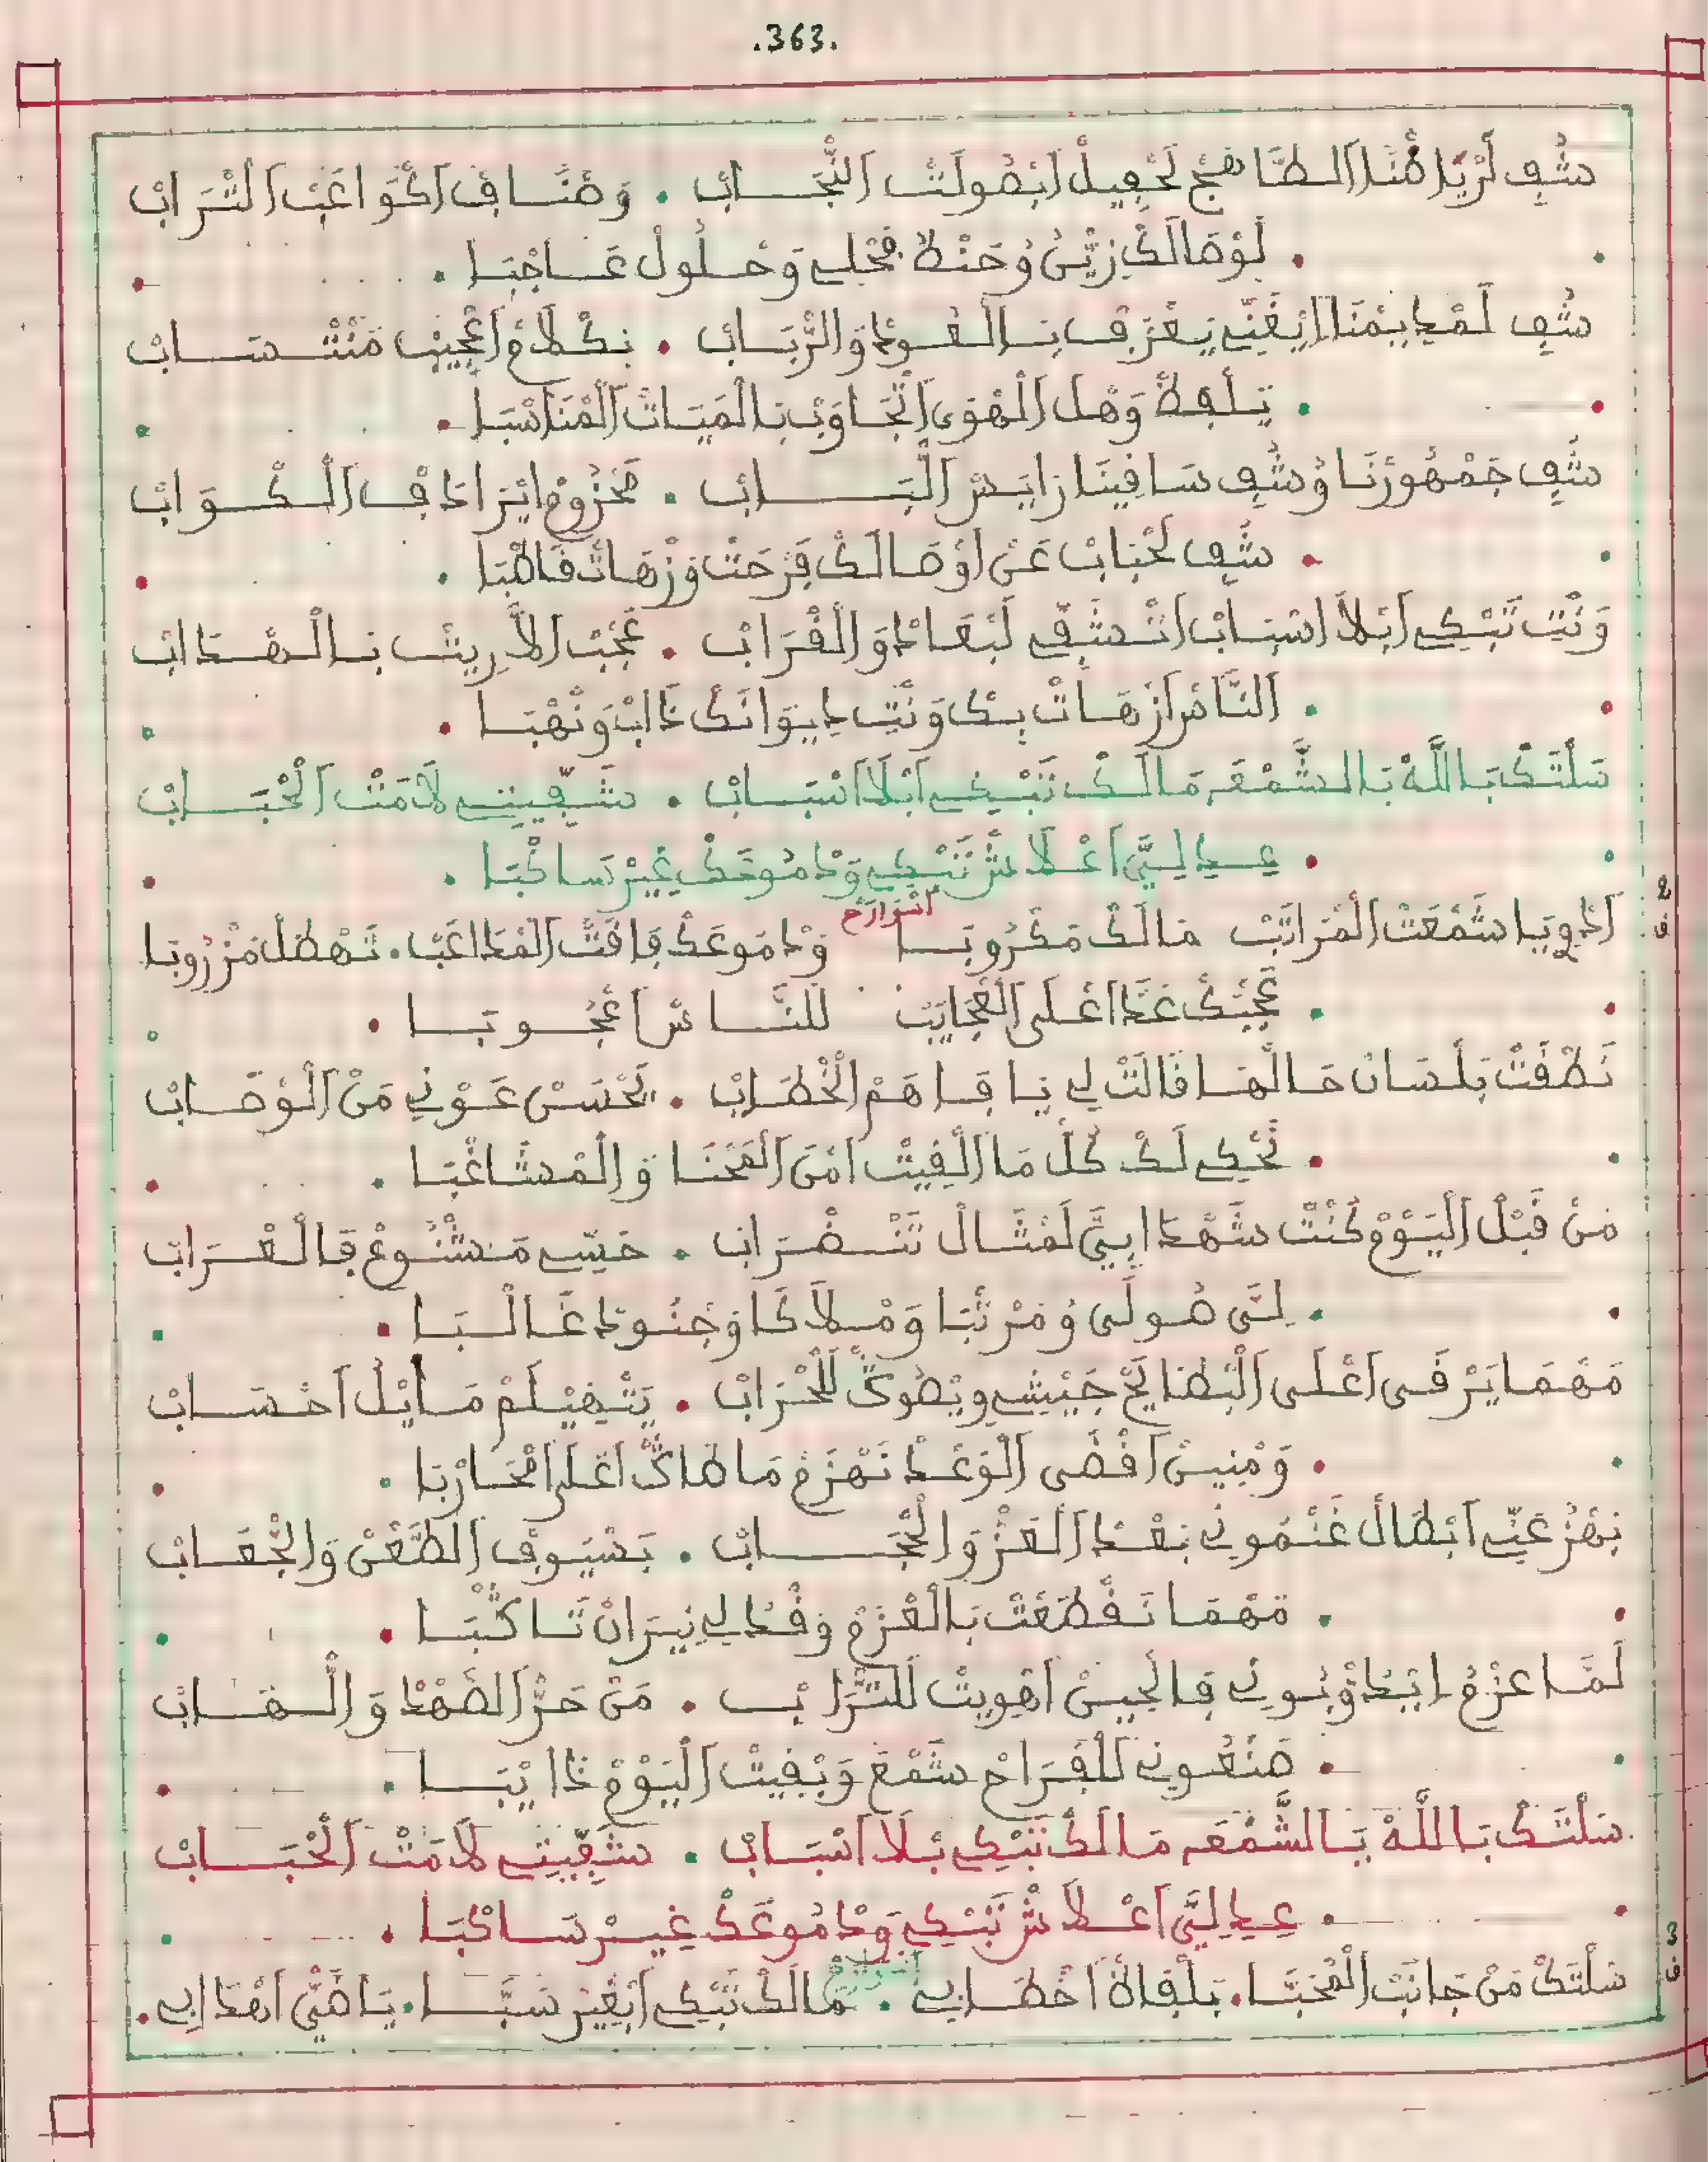 .363.
شُفِ لَرْيَاضْنَا الطَّافَحْ لَحْفِيلْ ابْصُولَتْ النّْجَابْ . وَصْنَافْ اكْوَاعَبْ الَتْرَابْ
. لَوْصَالَكْ زِيْنْ وُحَنْطْ فَحْلِي وَحْلُولْ عَاجْبَا .
شُفِ لَمْدِيمْنَا ايْغَنِّي يَعْزَفْ بِالْعُودْ وَالرّْبَابْ . بَكْلَامْ اعْجِيبْ مَنْتْسَابْ
. يَلْفَظْ وَهْلْ الْهْوَى اتْجَاوَبْ بِالْمَيَاتْ الْمْنَاسْبَا .
شُفِ جَمْهُورْنَا وُشُفِ سَاقِينَا زَايَدْ الْبَابْ . مَحْزُومْ ايْرَادَفْ الْكْوَابْ
. شُفِ لَحْبَابْ عَنْ اوْصَالَكْ فَرْحَتْ وَزْهَاتْ قَاطْبَا .
وَنْتِ تَبْكِي ابْلَا اسْبَابْ اتْشَفِّي لَبْعَادْ وَالْقْرَابْ . عَجْبْ الَا رِيتْ بِالْهْدَابْ
. النَّاسْ ازْهَاتْ بِكْ وَنْتِ دِيوَانَكْ ذَابْ وَنْهْبَا .
سَلْتَكْ بَاللَّهْ يَا الشَّمْعَه مَالَكْ تَبْكِي ابْلَا اسْبَابْ . شَفِّيتِي لَامَتْ الْحْبَابْ
. عِيدِ لِيَّ اعْلَاشْ تَبْكِي وَدْمُوعَكْ غِيرْ سَاكْبَا .
2
ف
اَدْوِ يَا شَمْعَتْ الْمْرَاتَبْ مَالَكْ مَكْرُوبَا وَدْمُوعَكْ فَاقَتْ الْمْدَاعَبْ . تَهْطَلْ مَزْرُوبَا
. عَجْبَكْ غَدَا اعْلَى الْعْجَايَبْ لَلنَّاسْ اعْجُوبَا .
نَطْقَتْ بَلْسَانْ حَالْهَا قَالَتْ لِي يَا فَاهَمْ الْخْطَابْ . يَحْسَنْ عَوْنِي مَنْ الْوْصَابْ
. نَحْكِي لَكْ كُلْ مَا الْقِيتْ امْنَ الْمَحْنَا وَالْمْشَاغْبَا .
مَنْ قَبْلْ الْيَوْمْ كُنْتْ شَهْدَا بِيَّ لَمْثَالْ تَنْضْرَابْ . حَسِّي مَشْنُوعْ فَالْعْرَابْ
. لِيَّ صُولَى وُمَرْتْبَا وَمْلَاكَا وَجْنُودْ غَالْبَا .
مَهْمَا يَرْقَى اعْلَى الْبْطَايَحْ جَيْشِي وِيْصُوكْ لَلْحْرَابْ . يَتْقِيْلَمْ مَا يْلْ احْسَابْ
. وَمْنِينْ اقْضَى الْوَعْدْ نَهْزَمْ مَا طَاكْ اعْلَى امْحَارْبَا .
نَهْزْ عَنِّي ابْطَالْ غَنْمُونِي بَعْدْ الْعَزْ وَالْحْجَابْ . بَسْيُوفْ الطَّعْنْ وَالْجْعَابْ
. مَهْمَا نَقْطَعْتْ بَالْعْزَمْ وَقْدُ لِي نِيرَانْ تَاكْبَا .
لَمَّا عَزْمُ ايْدَوْبُونِي فَالْحِينْ اهْوِيتْ لَلتّْرَابْ . مَنْ حَرّْ الصَّهْدْ وَالْهَابْ
. صَنْعُونِي لَلْفْرَاحْ شَمْعَ وَبْقِيتْ الْيَوْمْ ذَايْبَا .
سَلْتَكْ بَاللَّهْ يَا الشَّمْعَه مَالَكْ تَبْكِي بْلَا اسْبَابْ . شَفِّيتِي لَامَتْ الْحْبَابْ
. عِيدِ لِيَّ اعْلَاشْ تَبْكِي وَدْمُوعَكْ غِيرْ سَاكْبَا .
3
ف
سَلْتَكْ مَنْ جَانَبْ الْمْحَبَّا . بَلْفَاظْ اخْطَابِي . مَالَكْ تَبْكِي ابْغِيرْ سَبَّا . يَا ضَيّْ اهْدَابِي .